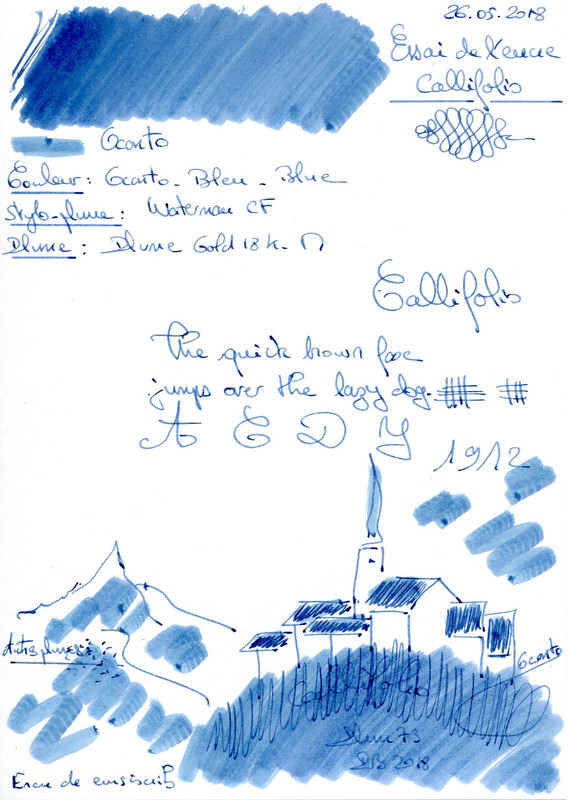 26.05.2018
Essai de l'encre
Callifolis
Oconto
Couleur : Oconto - Bleu - Blue
Stylo-plume : Waterman CF
Plume : Plume Gold 18k - M
Callifolis
The quick brown foxe
jumps over the lazy dog.
A E D Y
1912
Oconto
Plume 73
2018
Encre de